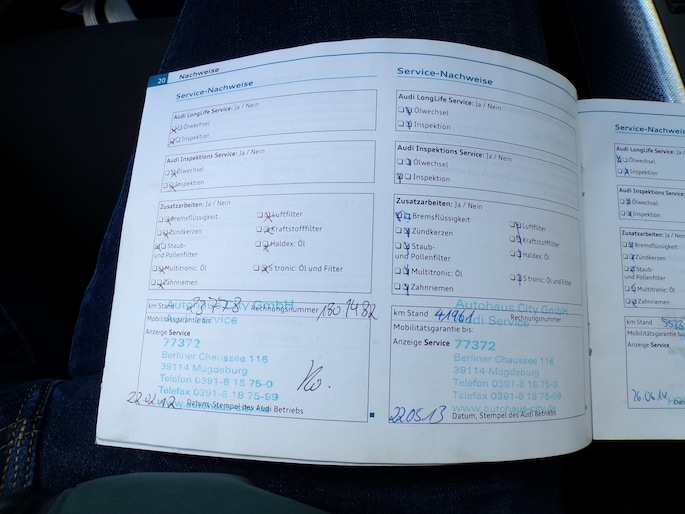 20 Nachweise
Service-Nachweise
Audi LongLife Service: Ja / Nein
Ölwechsel
Inspektion
Audi Inspektions Service: Ja / Nein
Ölwechsel
Inspektion
Zusatzarbeiten: Ja / Nein
Bremsflüssigkeit
Luftfilter
Zündkerzen
Kraftstofffilter
Staub-
und Pollenfilter
Haldex: Öl
Multitronic: Öl
S tronic: Öl und Filter
Zahnriemen
Autohaus City GmbH
km Stand 23778 Rechnungsnummer 1801482
Audi Service
Mobilitätsgarantie bis:
Anzeige Service
77372
Berliner Chaussee 116
39114 Magdeburg
Telefon 0391-8 18 75-0
Telefax 0391-8 18 75-69
22.02.12 Datum, Stempel des Audi Betriebs
Service-Nachweise
Audi LongLife Service: Ja / Nein
Ölwechsel
Inspektion
Audi Inspektions Service: Ja / Nein
Ölwechsel
Inspektion
Zusatzarbeiten: Ja / Nein
Bremsflüssigkeit
Luftfilter
Zündkerzen
Kraftstofffilter
Staub-
und Pollenfilter
Haldex: Öl
Multitronic: Öl
S tronic: Öl und Filter
Zahnriemen
Autohaus City GmbH
km Stand 41961 Rechnungsnummer
Audi Service
Mobilitätsgarantie bis:
Anzeige Service
77372
Berliner Chaussee 116
39114 Magdeburg
Telefon 0391-8 18 75-0
Telefax 0391-8 18 75-69
www.autohaus-city.de
22.05.13 Datum, Stempel des Audi Betriebs
Service-Nachweise
Audi LongLife Service: Ja / Nein
Ölwechsel
Inspektion
Audi Inspektions Service:
Ölwechsel
Inspektion
Zusatzarbeiten: Ja / Nein
Bremsflüssigkeit
Zündkerzen
Staub-
und Pollenfilter
Multitronic: Öl
Zahnriemen
km Stand
Mobilitätsgarantie bis:
Anzeige Service
26.06.14